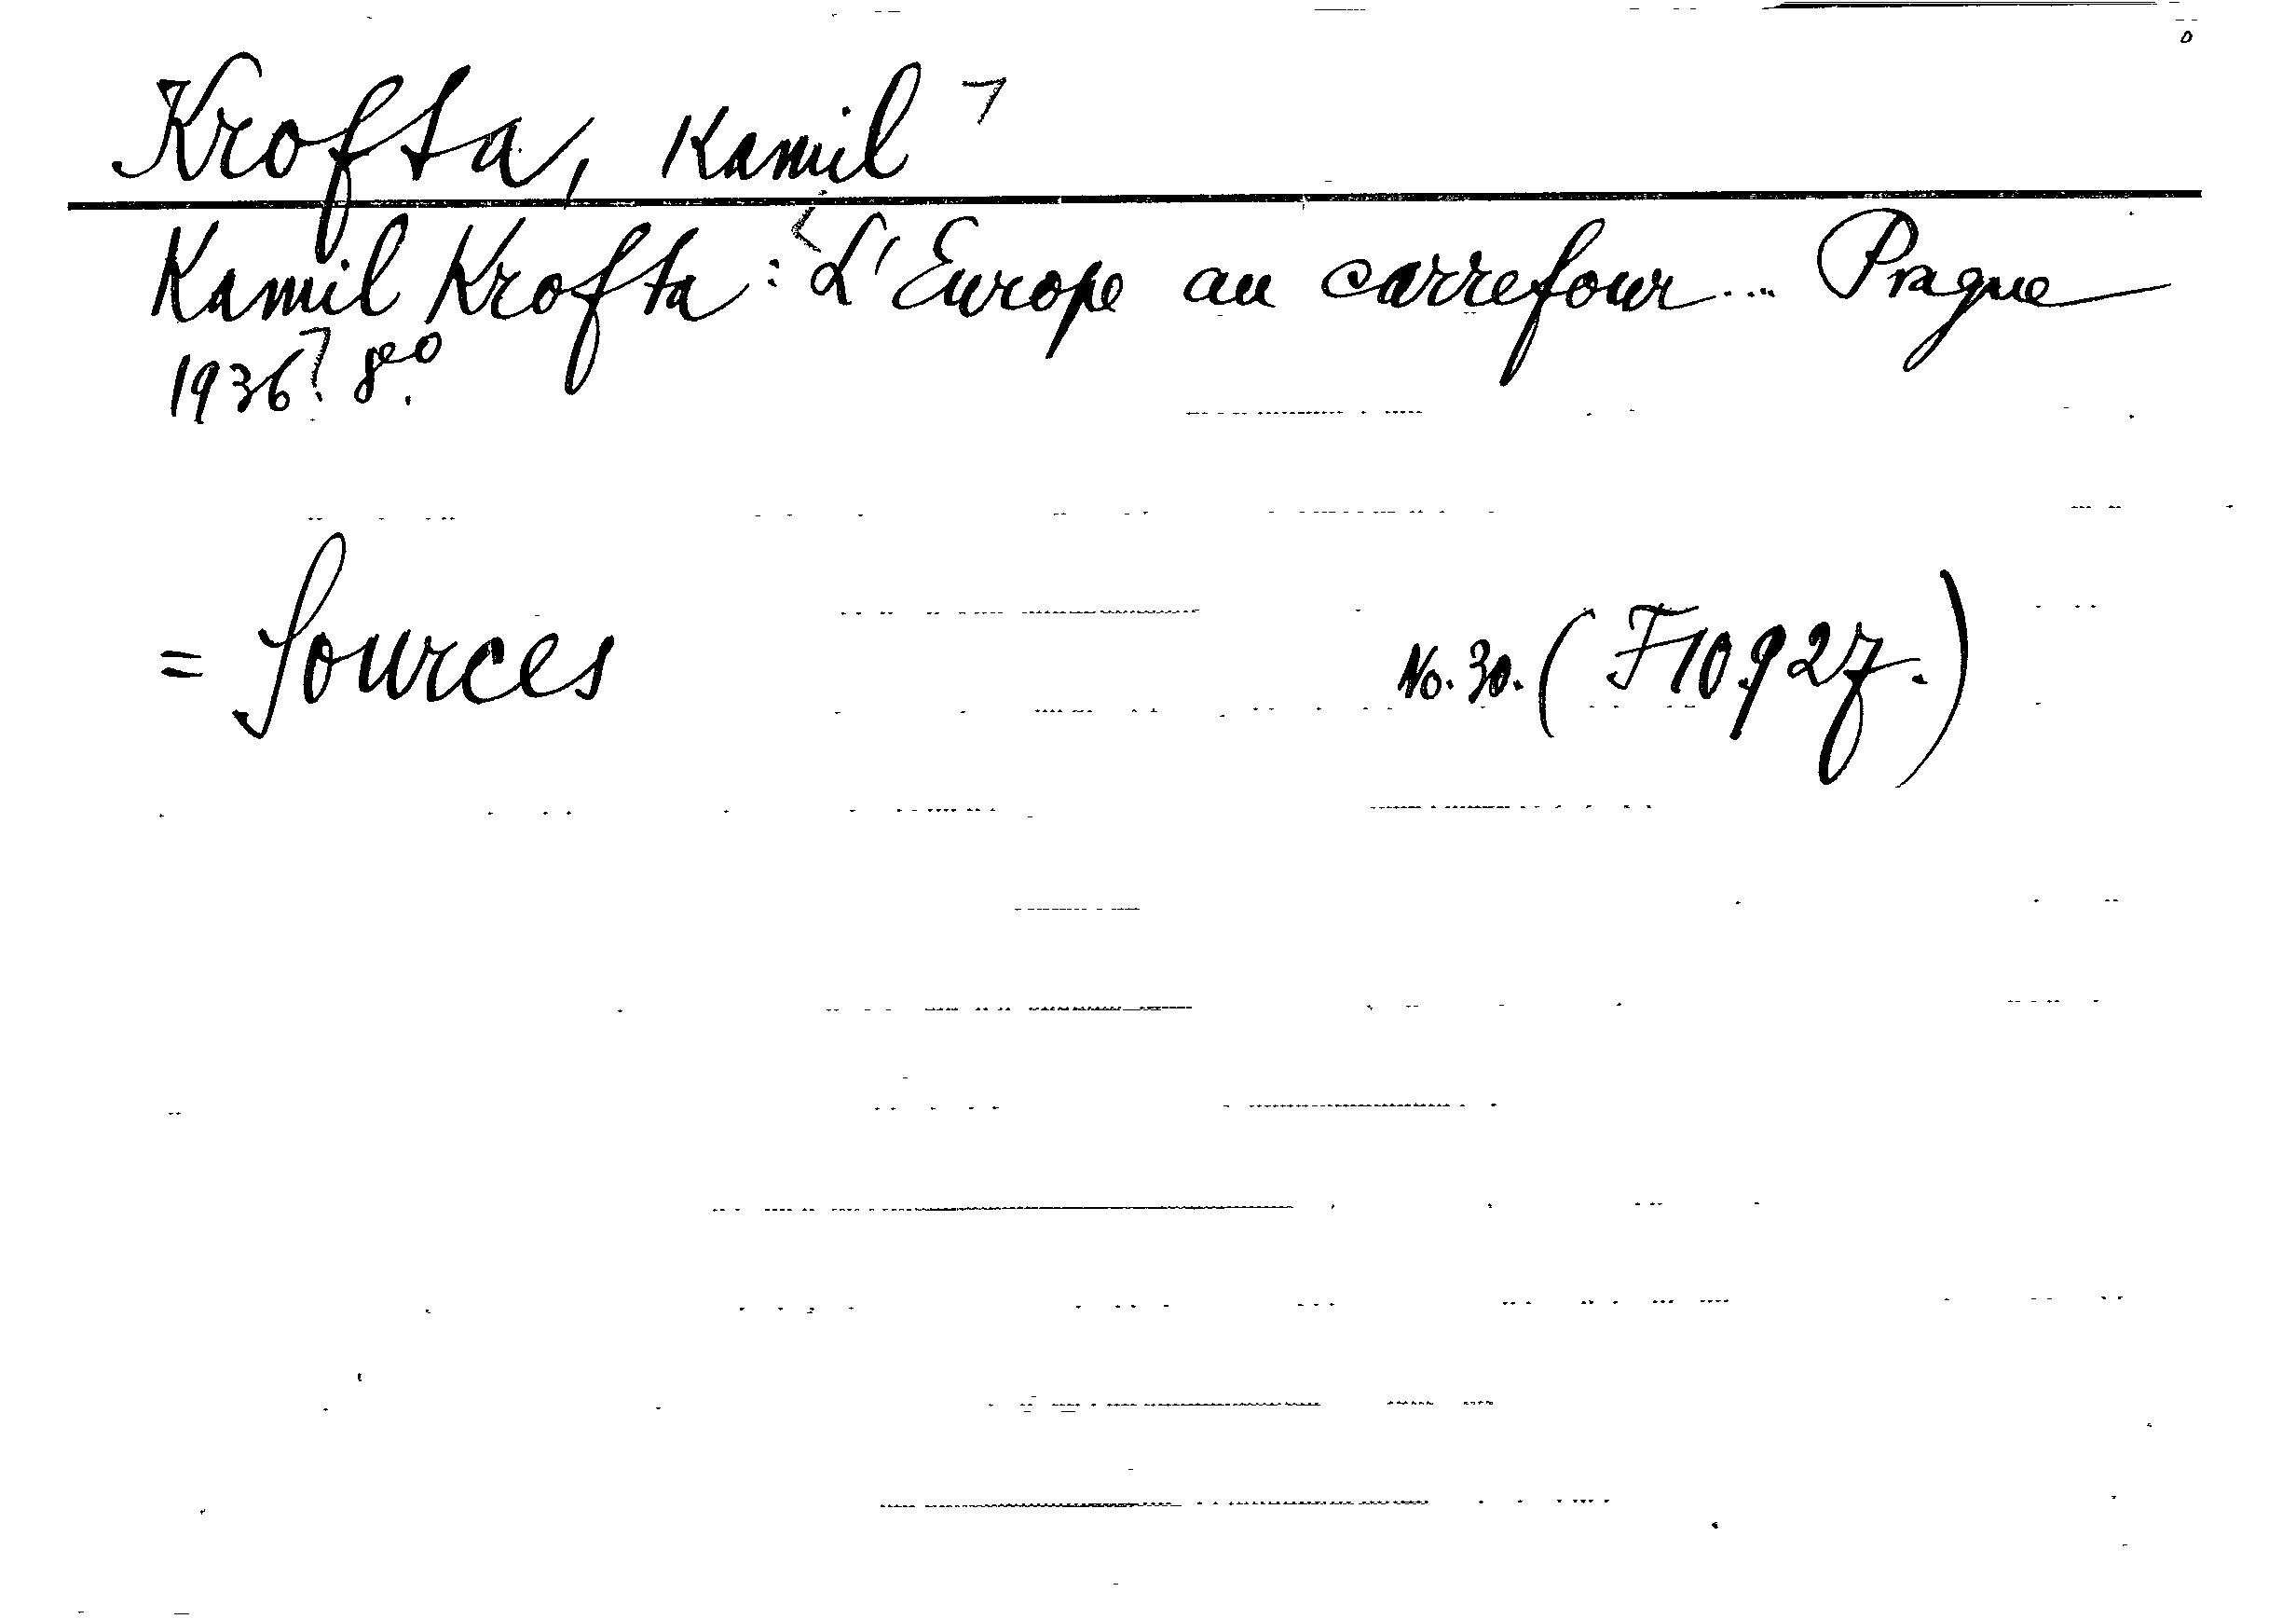 Krofta, Kamil
Kamil Krofta: L'Europe au carrefour... Prague
1936. 8°.
= Sources No. 30. (F10.927.)